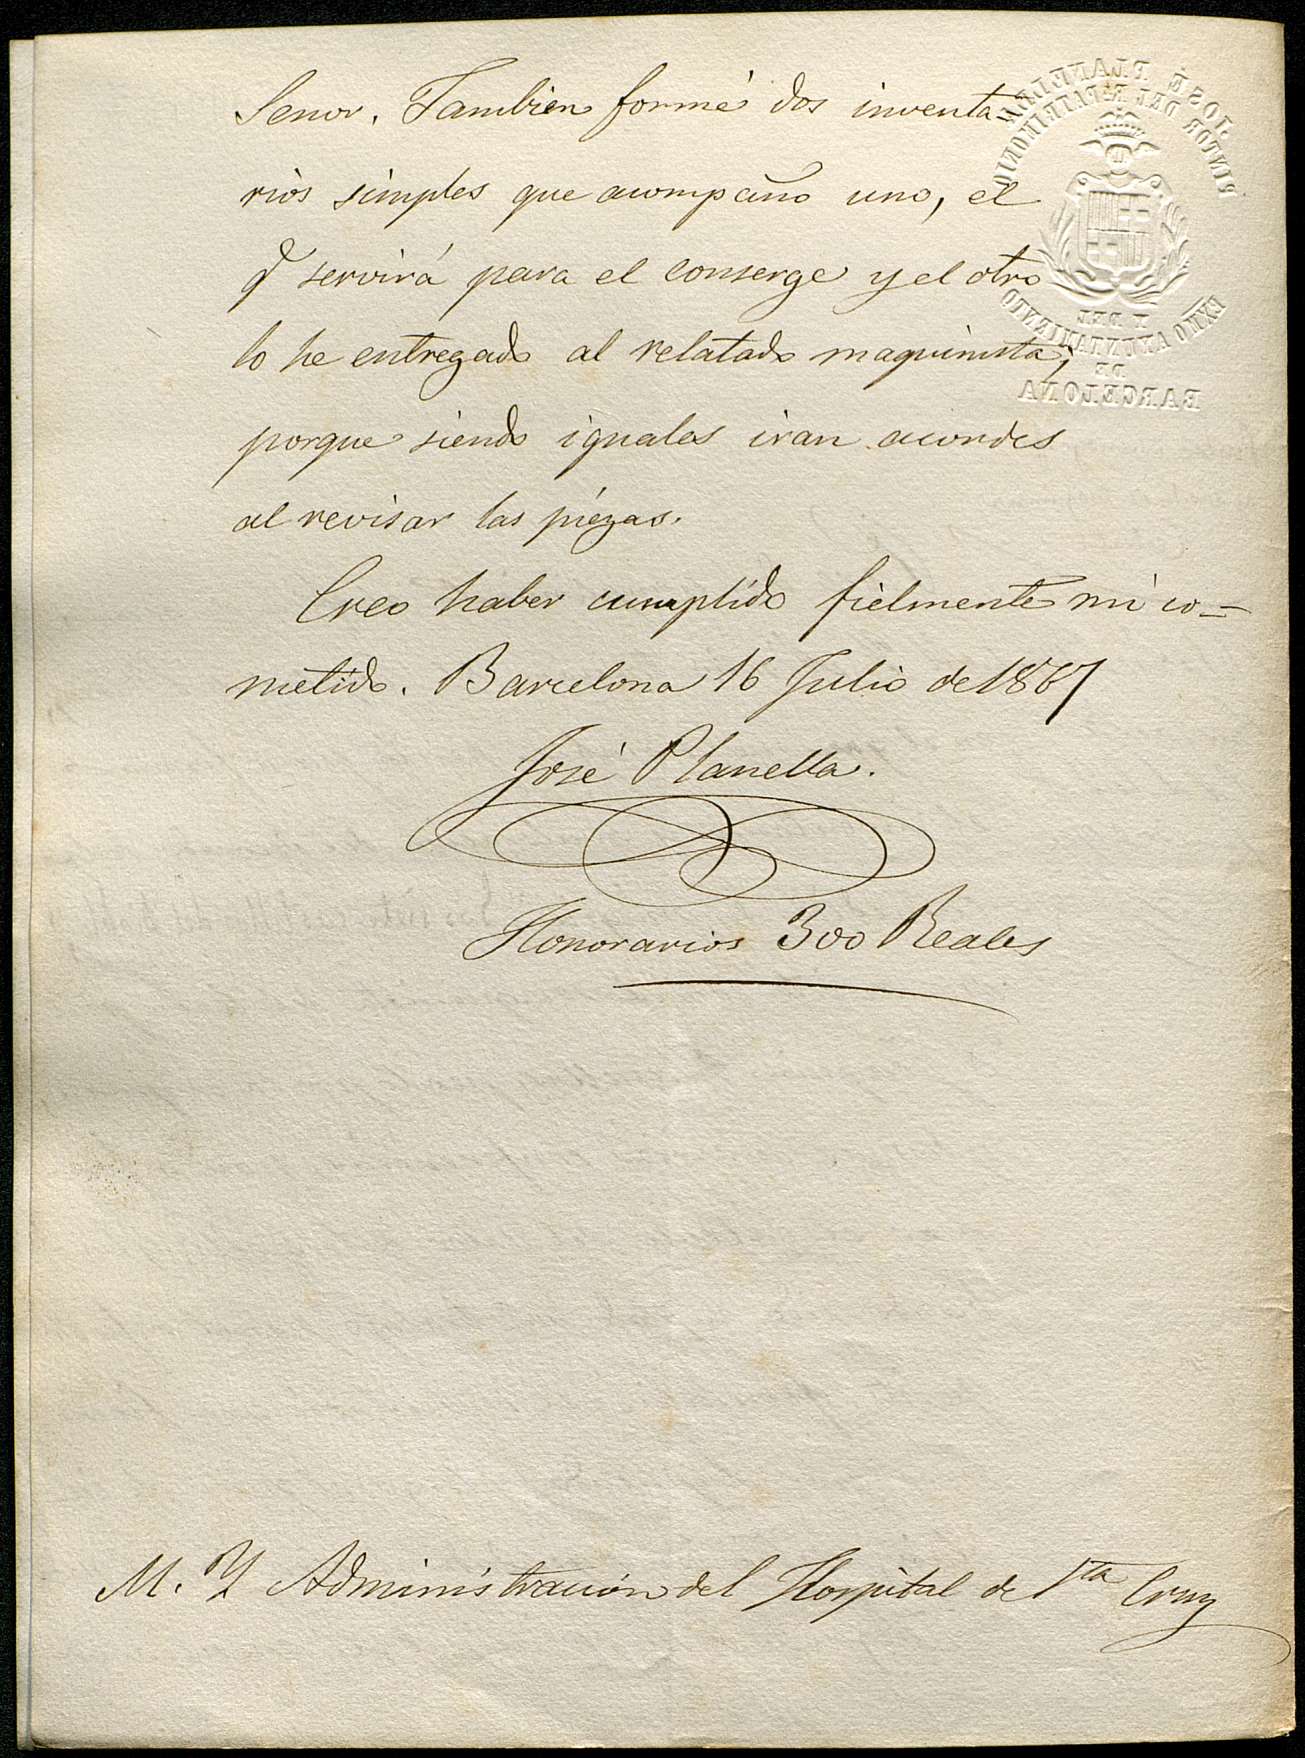 Senor. Tambien formé dos inventa-
rios simples que acompaño uno, el
q̃ servirá para el conserge y el otro
lo he entregado al relatado maquinista;
porque siendo iguales iran acordes
al revisar las piezas.
Creo haber cumplido fielmente mi co=
metido. Barcelona 16 Julio de 1867
José Planella.
Honorarios 300 Reales
M. Y Administración del Hospital de Sta Cruz
JOSÉ PLANELLA
PINTOR DEL R. PATRIMONIO
Y DEL
EXMO AYUNTAMIENTO
DE
BARCELONA